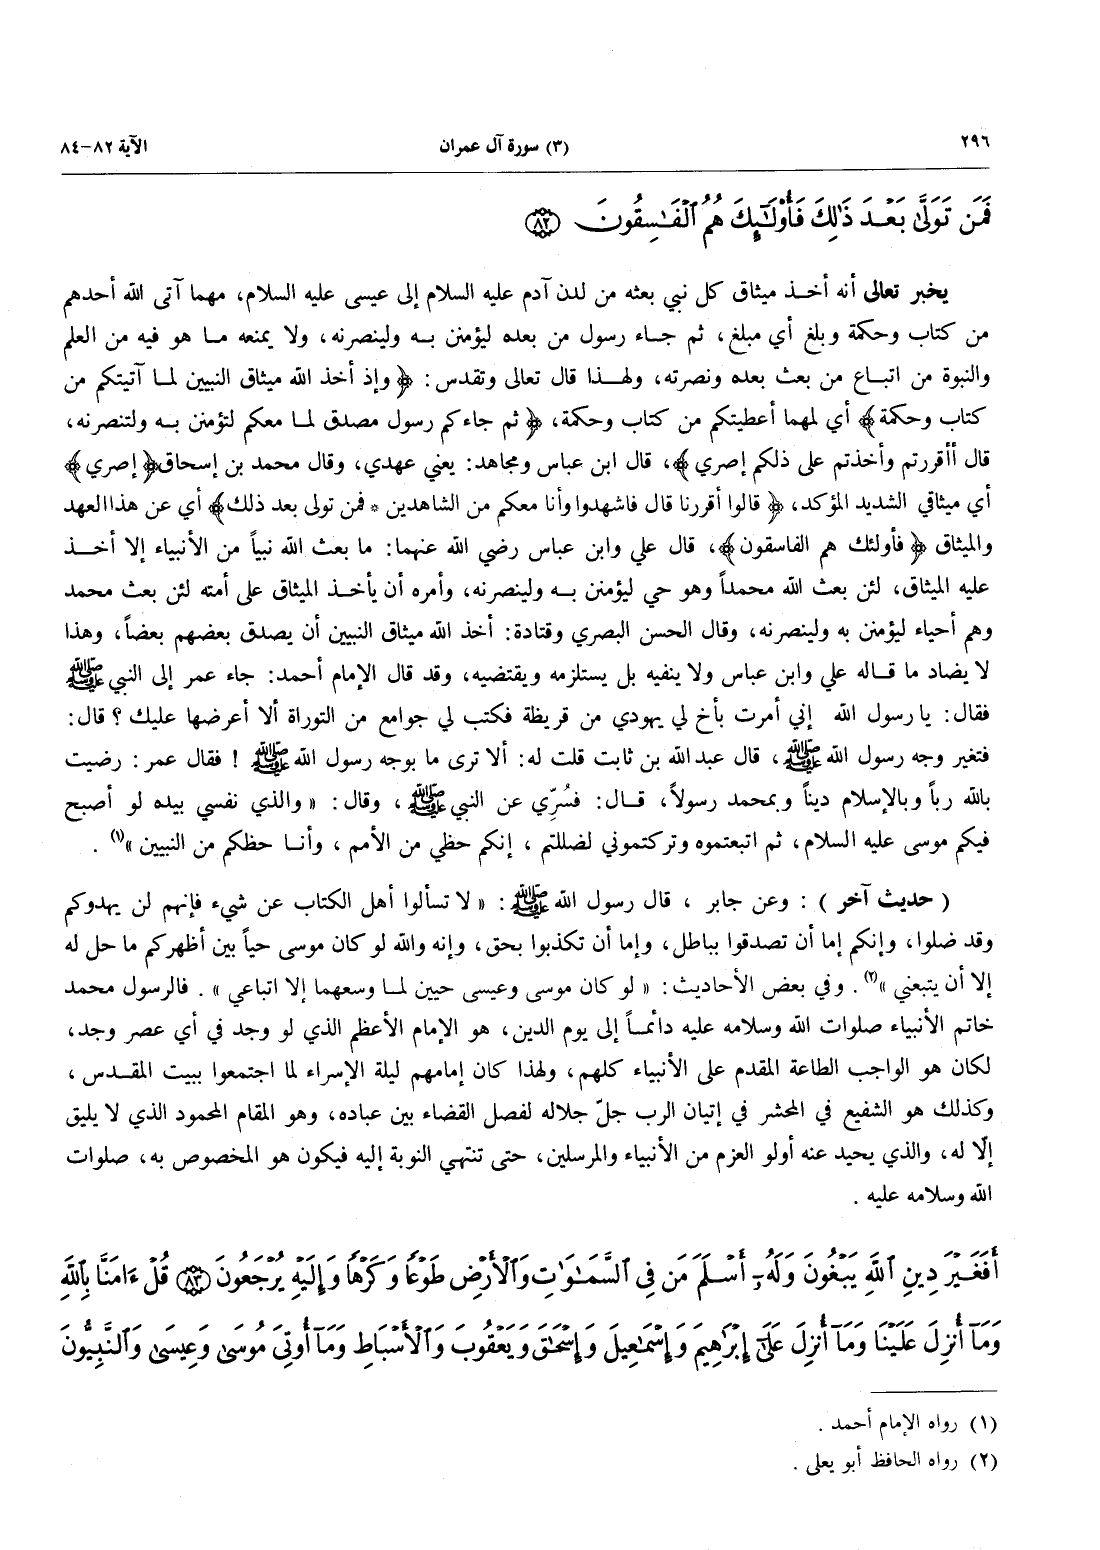 ٢٩٦ (٣) سورة آل عمران الآية ٨٢-٨٤
فَمَن تَوَلَّىٰ بَعْدَ ذَٰلِكَ فَأُو۟لَٰٓئِكَ هُمُ ٱلْفَٰسِقُونَ ٨٢
يخبر تعالى أنه أخذ ميثاق كل نبي بعثه من لدن آدم عليه السلام إلى عيسى عليه السلام، مهما آتى الله أحدهم
من كتاب وحكمة وبلغ أي مبلغ، ثم جاء رسول من بعده ليؤمنن به ولينصرنه، ولا يمنعه ما هو فيه من العلم
والنبوة من اتباع من بعث بعده ونصرته، ولهذا قال تعالى وتقدس: ﴿ وإذ أخذ الله ميثاق النبيين لما آتيتكم من
كتاب وحكمة﴾ أي لمهما أعطيتكم من كتاب وحكمة، ﴿ ثم جاءكم رسول مصدق لما معكم لتؤمنن به ولتنصرنه،
قال أأقررتم وأخذتم على ذلكم إصري﴾، قال ابن عباس ومجاهد: يعني عهدي، وقال محمد بن إسحاق﴿إصري﴾
أي ميثاقي الشديد المؤكد، ﴿ قالوا أقررنا قال فاشهدوا وأنا معكم من الشاهدين * فمن تولى بعد ذلك﴾ أي عن هذا العهد
والميثاق ﴿ فأولئك هم الفاسقون﴾، قال علي وابن عباس رضي الله عنهما: ما بعث الله نبياً من الأنبياء إلا أخذ
عليه الميثاق، لئن بعث الله محمداً وهو حي ليؤمنن به ولينصرنه، وأمره أن يأخذ الميثاق على أمته لئن بعث محمد
وهم أحياء ليؤمنن به ولينصرنه، وقال الحسن البصري وقتادة: أخذ الله ميثاق النبيين أن يصدق بعضهم بعضاً، وهذا
لا يضاد ما قاله علي وابن عباس ولا ينفيه بل يستلزمه ويقتضيه، وقد قال الإمام أحمد: جاء عمر إلى النبي ﷺ
فقال: يا رسول الله إني أمرت بأخ لي يهودي من قريظة فكتب لي جوامع من التوراة ألا أعرضها عليك ؟ قال:
فتغير وجه رسول الله ﷺ، قال عبد الله بن ثابت قلت له: ألا ترى ما بوجه رسول الله ﷺ ! فقال عمر: رضيت
بالله رباً وبالإسلام ديناً وبمحمد رسولاً، قال: فسُرِّي عن النبي ﷺ، وقال: « والذي نفسي بيده لو أصبح
فيكم موسى عليه السلام، ثم اتبعتموه وتركتموني لضللتم ، إنكم حظي من الأمم ، وأنا حظكم من النبيين »(١) .
( حديث آخر ) : وعن جابر ، قال رسول الله ﷺ: « لا تسألوا أهل الكتاب عن شيء فإنهم لن يهدوكم
وقد ضلوا، وإنكم إما أن تصدقوا بباطل، وإما أن تكذبوا بحق، وإنه والله لو كان موسى حياً بين أظهركم ما حل له
إلا أن يتبعني »(٢) . وفي بعض الأحاديث: « لو كان موسى وعيسى حيين لما وسعهما إلا اتباعي » . فالرسول محمد
خاتم الأنبياء صلوات الله وسلامه عليه دائماً إلى يوم الدين، هو الإمام الأعظم الذي لو وجد في أي عصر وجد،
لكان هو الواجب الطاعة المقدم على الأنبياء كلهم، ولهذا كان إمامهم ليلة الإسراء لما اجتمعوا ببيت المقدس ،
وكذلك هو الشفيع في المحشر في إتيان الرب جلّ جلاله لفصل القضاء بين عباده، وهو المقام المحمود الذي لا يليق
إلّا له، والذي يحيد عنه أولو العزم من الأنبياء والمرسلين، حتى تنتهي النوبة إليه فيكون هو المخصوص به، صلوات
الله وسلامه عليه .
أَفَغَيْرَ دِينِ ٱللَّهِ يَبْغُونَ وَلَهُۥٓ أَسْلَمَ مَن فِى ٱلسَّمَٰوَٰتِ وَٱلْأَرْضِ طَوْعًا وَكَرْهًا وَإِلَيْهِ يُرْجَعُونَ ٨٣ قُلْ ءَامَنَّا بِٱللَّهِ
وَمَآ أُنزِلَ عَلَيْنَا وَمَآ أُنزِلَ عَلَىٰٓ إِبْرَٰهِيمَ وَإِسْمَٰعِيلَ وَإِسْحَٰقَ وَيَعْقُوبَ وَٱلْأَسْبَاطِ وَمَآ أُوتِىَ مُوسَىٰ وَعِيسَىٰ وَٱلنَّبِيُّونَ
(١) رواه الإمام أحمد .
(٢) رواه الحافظ أبو يعلى .